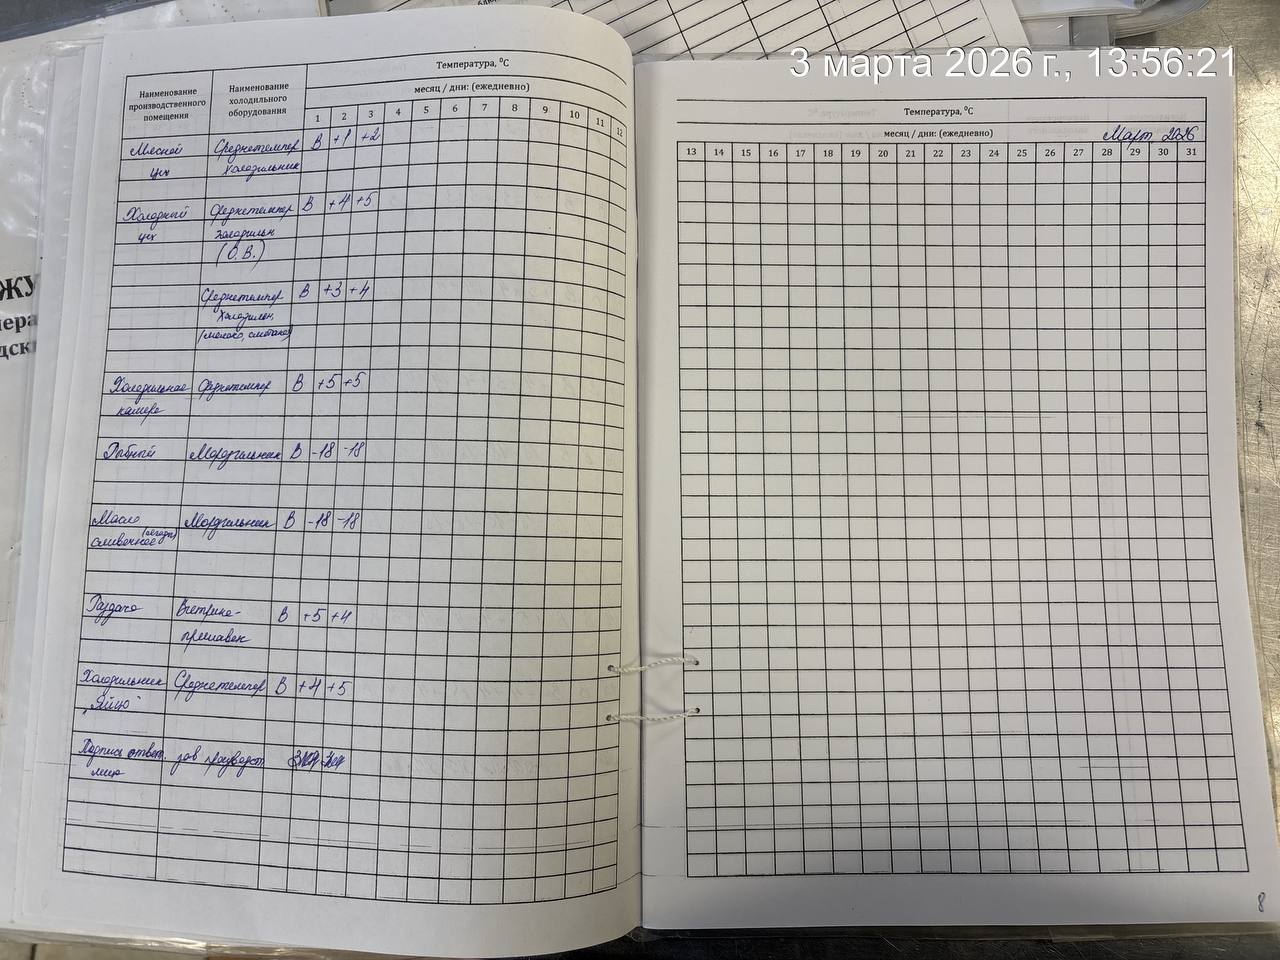 3 марта 2026 г., 13:56:21
Наименование производственного помещения
Наименование холодильного оборудования
Температура, ⁰С
месяц / дни: (ежедневно)
1 2 3 4 5 6 7 8 9 10 11 12
Мясной Среднетемпер В +1 +2
цех холодильник
Холодный Среднетемпер В +4 +5
цех холодильн
(О.В.)
Среднетемпер В +3 +4
холодильн
(молоко, сметана)
Холодильная Среднетемпер В +5 +5
камера
Рыбный Морозильник В -18 -18
Масло Морозильник В -18 -18
сливочное
Раздача Витрина- В +5 +4
прилавок
Холодильник Среднетемпер В +4 +5
"Яйцо"
Подпись ответ. зав производст
лица
Температура, ⁰С
месяц / дни: (ежедневно) Март 2026
13 14 15 16 17 18 19 20 21 22 23 24 25 26 27 28 29 30 31
8
ЖУ